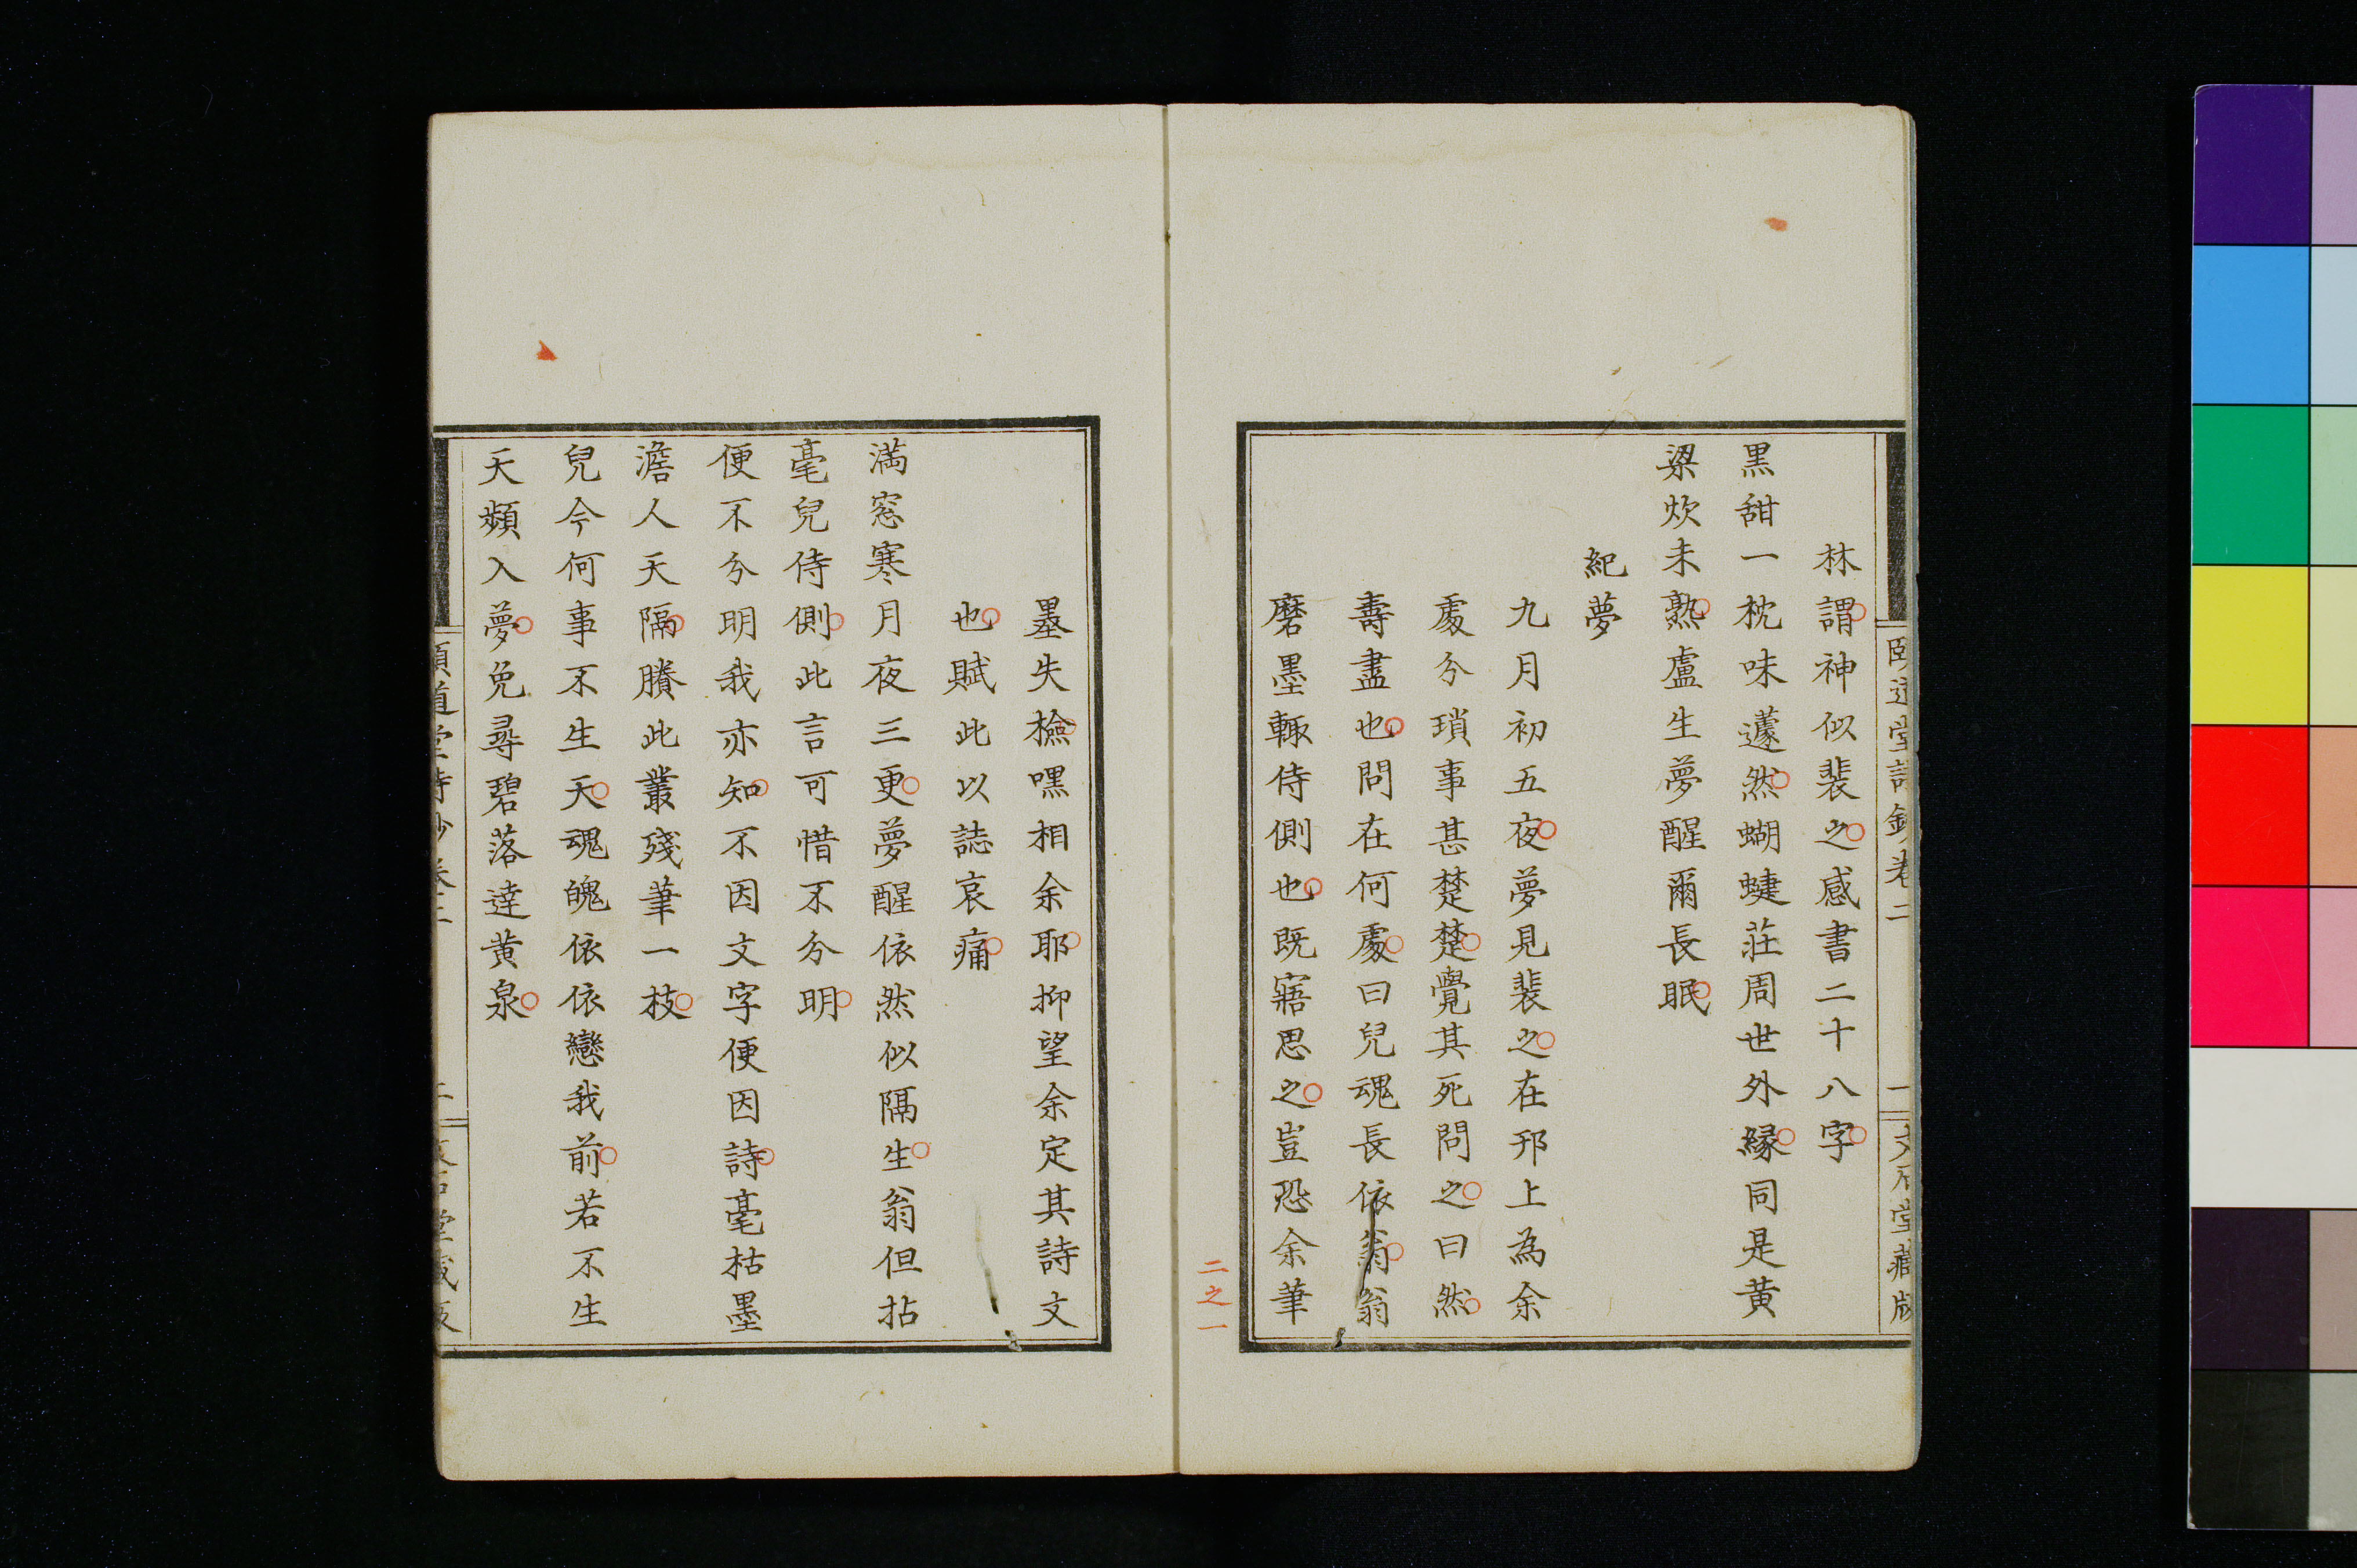 頤道堂詩鈔卷二 一 文石堂藏版
林謂神似裴之感書二十八字
黒甜一枕味蘧然蝴蜨莊周世外縁同是黄
粱炊未熟盧生夢醒爾長眠
紀夢
九月初五夜夢見裴之在邗上為余
處分瑣事甚楚楚覺其死問之曰然
壽盡也問在何處曰兒魂長依翁翁
磨墨輒侍側也既寤思之豈恐余筆
二之一
墨失檢嘿相余耶抑望余定其詩文
也賦此以誌哀痛
満窓寒月夜三更夢醒依然似隔生翁但拈
毫兒侍側此言可惜不分明
便不分明我亦知不因文字便因詩毫枯墨
澹人天隔賸此叢殘筆一枝
兒今何事不生天魂魄依依戀我前若不生
天頻入夢免尋碧落達黄泉
頤道堂詩鈔卷二